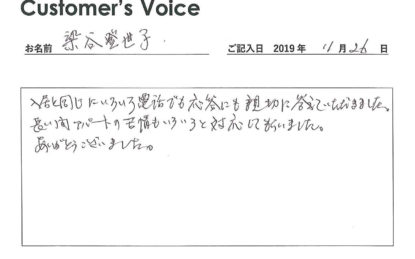 Customer's Voice
お名前 染谷登世子 ご記入日 2019年 11月26日
入居と同じにいろいろ電話でも応答にも親切に答えていただきました。
長い間アパートの苦情もいろいろと対応してもらいました。
ありがとうございました。